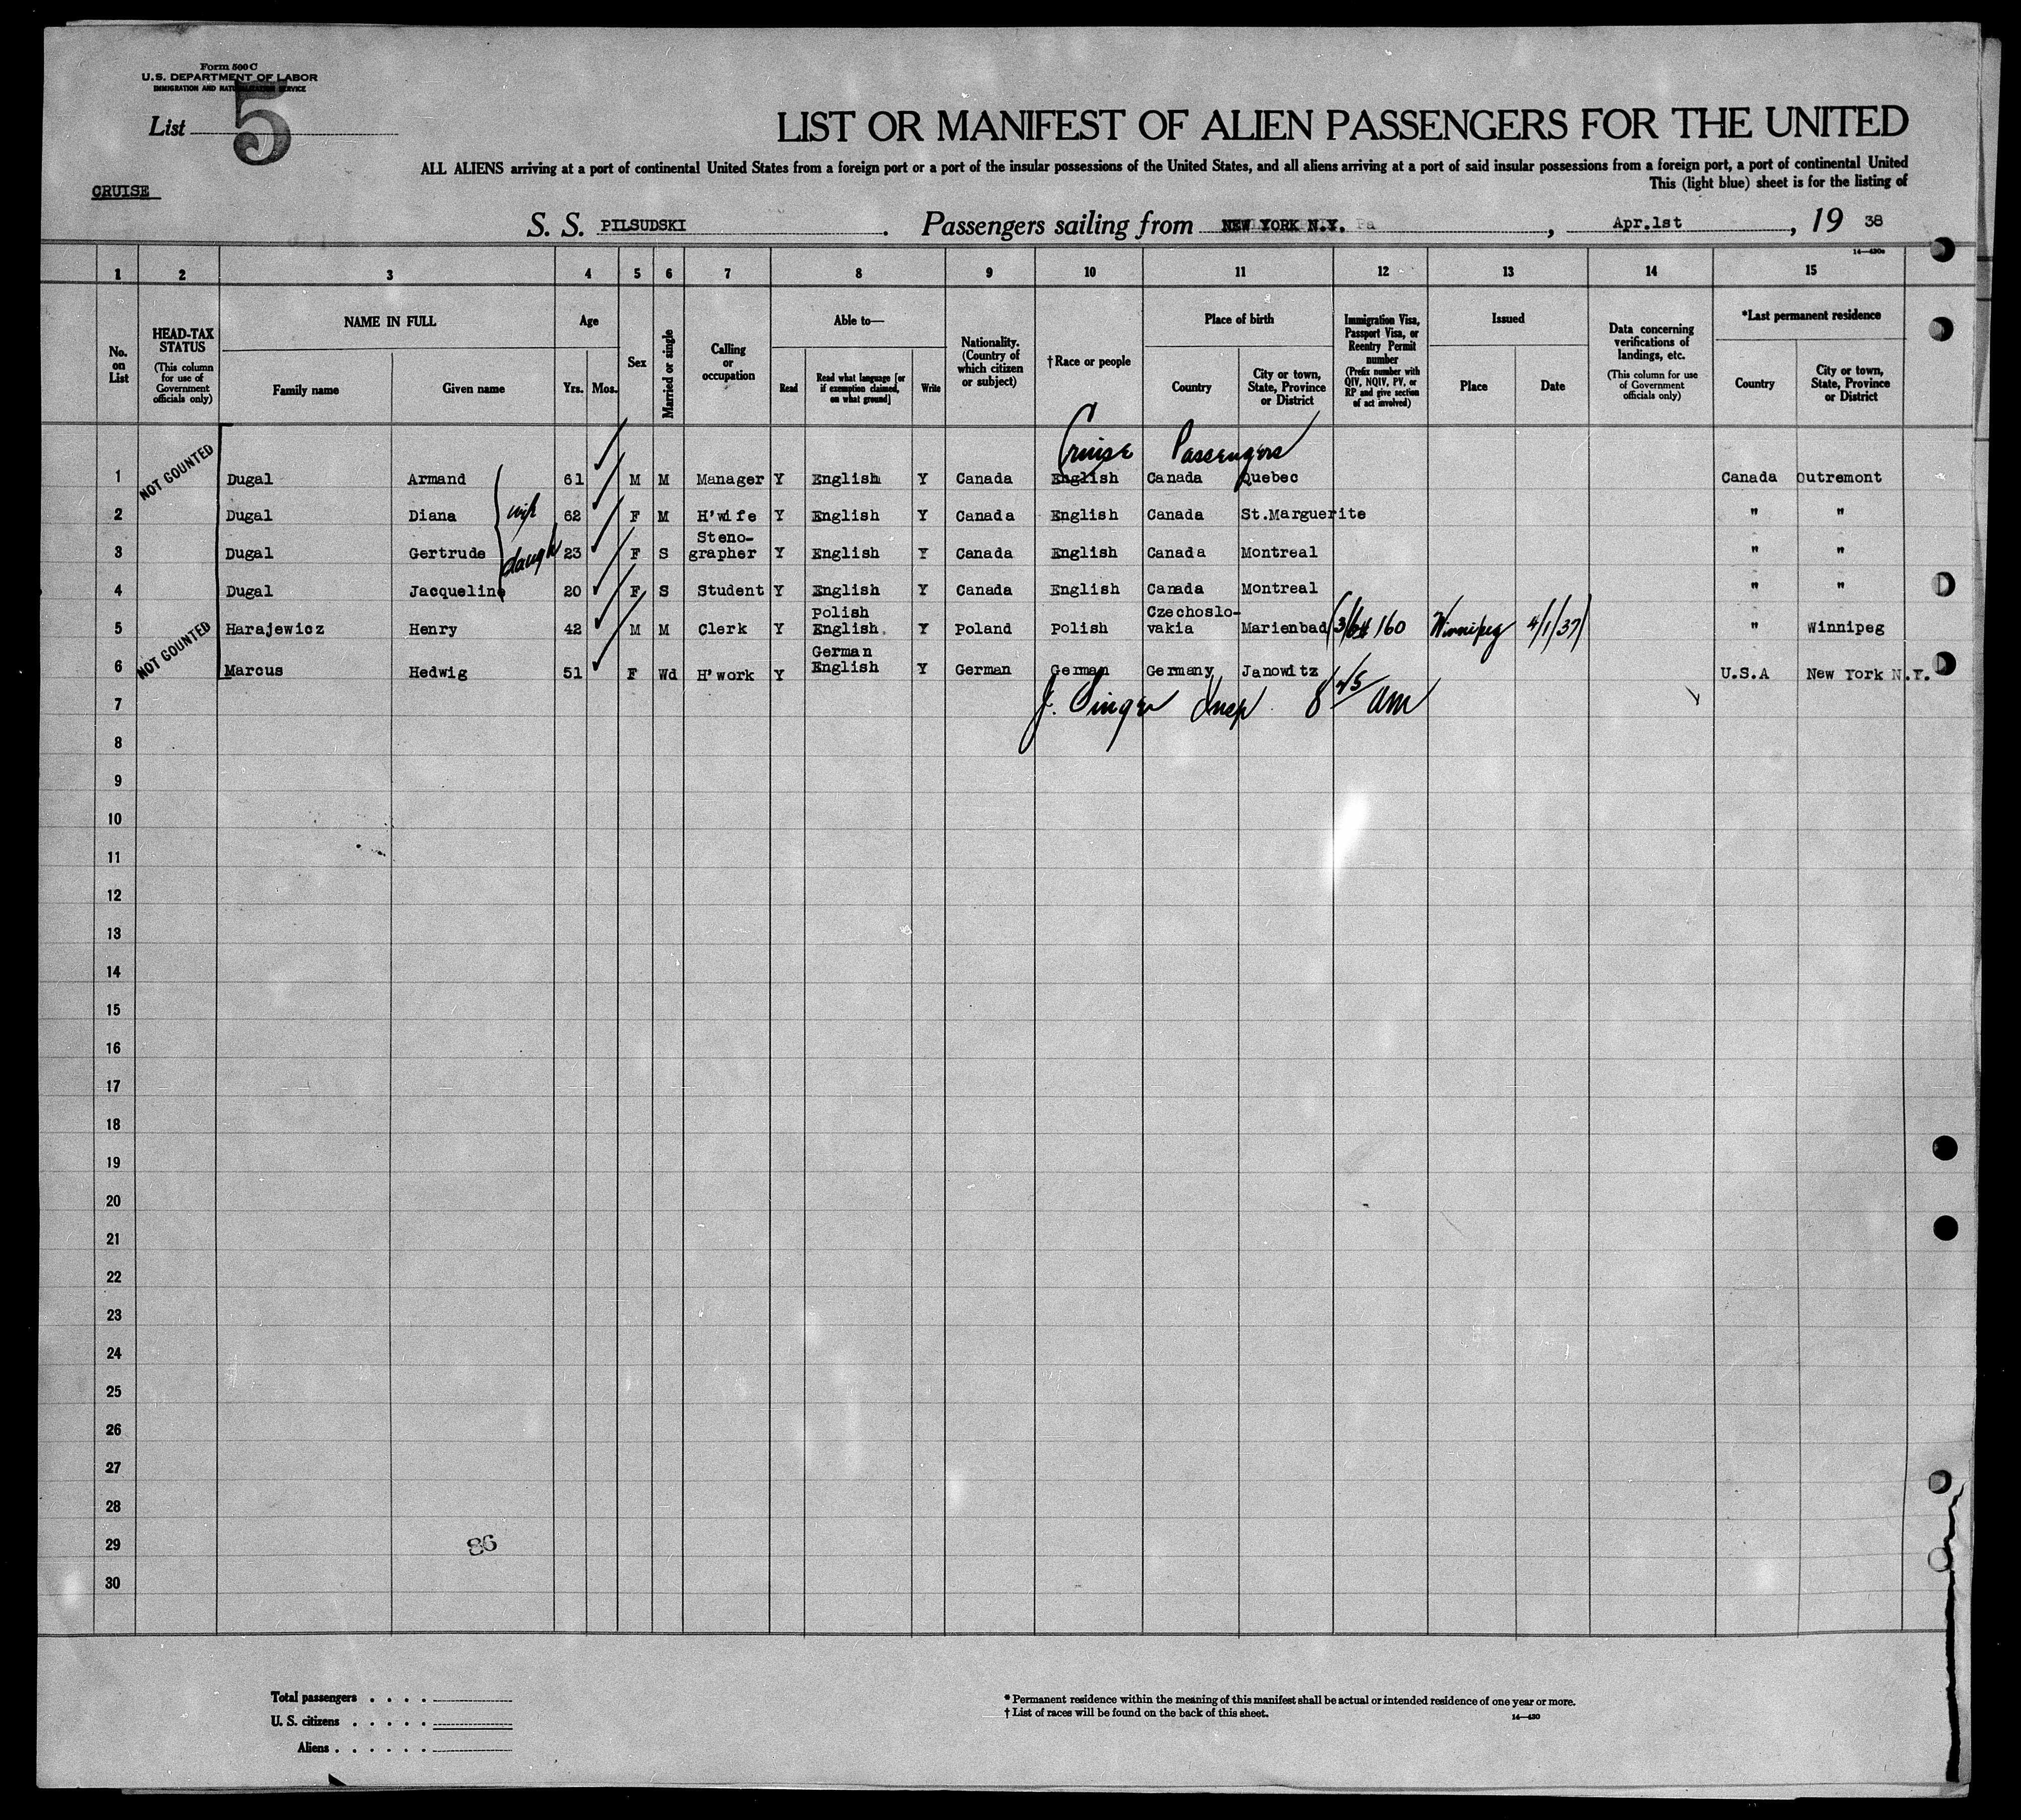 Form 500 C
U.S. DEPARTMENT OF LABOR
IMMIGRATION AND NATURALIZATION SERVICE
List 5
LIST OR MANIFEST OF ALIEN PASSENGERS FOR THE UNITED
ALL ALIENS arriving at a port of continental United States from a foreign port or a port of the insular possessions of the United States, and all aliens arriving at a port of said insular possessions from a foreign port, a port of continental United
This (light blue) sheet is for the listing of
CRUISE
S. S. PILSUDSKI. Passengers sailing from NEW YORK N.Y., Apr.1st, 19 38
14—430c
1 2 3 4 5 6 7 8 9 10 11 12 13 14 15
No. on List
HEAD-TAX STATUS
(This column for use of Government officials only)
NAME IN FULL
Family name Given name
Age
Yrs. Mos.
Sex
Married or single
Calling or occupation
Able to—
Read
Read what language [or if exemption claimed, on what ground]
Write
Nationality. (Country of which citizen or subject)
† Race or people
Place of birth
Country
City or town, State, Province or District
Immigration Visa, Passport Visa, or Reentry Permit number
(Prefix number with QIV, NQIV, PV, or RP and give section of act involved)
Issued
Place Date
Data concerning verifications of landings, etc.
(This column for use of Government officials only)
*Last permanent residence
Country
City or town, State, Province or District
Cruise Passengers
NOT COUNTED
1 Dugal Armand 61 M M Manager Y English Y Canada English Canada Quebec Canada Outremont
2 Dugal Diana wife 62 F M H'wife Y English Y Canada English Canada St.Marguerite " "
3 Dugal Gertrude daugh 23 F S Steno-grapher Y English Y Canada English Canada Montreal " "
4 Dugal Jacqueline 20 F S Student Y English Y Canada English Canada Montreal " "
5 Harajewicz Henry 42 M M Clerk Y Polish English Y Poland Polish Czechoslo-vakia Marienbad 160 Winnipeg 4/1/37 " Winnipeg
NOT COUNTED
6 Marcus Hedwig 51 F Wd H'work Y German English Y German German Germany Janowitz U.S.A New York N.Y.
J. Singer Insp 8 45 am
7
8
9
10
11
12
13
14
15
16
17
18
19
20
21
22
23
24
25
26
27
28
29
30
86
Total passengers . . . .
U. S. citizens . . . . .
Aliens . . . . . .
* Permanent residence within the meaning of this manifest shall be actual or intended residence of one year or more.
† List of races will be found on the back of this sheet.
14—430